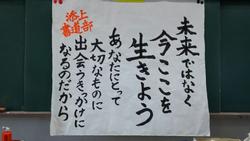 未来ではなく
今ここを
生きよう
あなたにとって
大切なものに
出会うきっかけに
なるのだから
添上
書道部